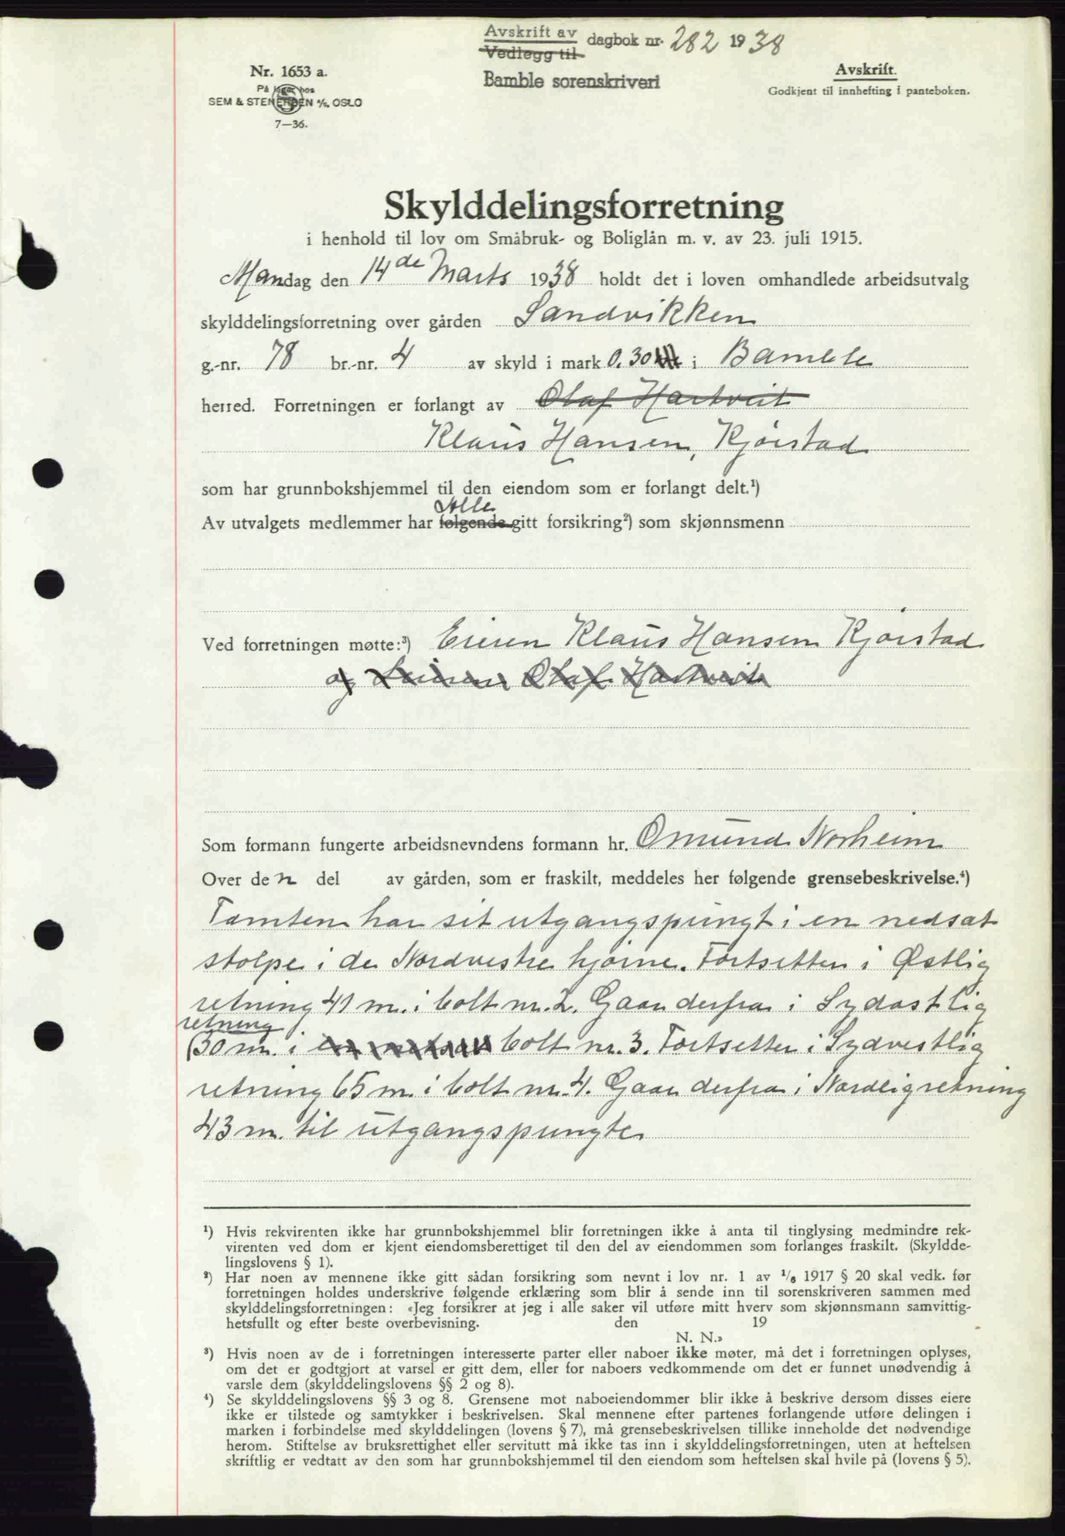 Avskrift av
Vedlegg til dagbok nr. 282 1938
Bamble sorenskriveri
Nr. 1653 a.
På lager hos
SEM & STENERSEN A/S, OSLO
7—36.
Avskrift.
Godkjent til innhefting i panteboken.
Skylddelingsforretning
i henhold til lov om Småbruk- og Boliglån m. v. av 23. juli 1915.
Mandag den 14de Marts 1938 holdt det i loven omhandlede arbeidsutvalg
skylddelingsforretning over gården Sandvikken
g.-nr. 78 br.-nr. 4 av skyld i mark 0.30 i Bamble
herred. Forretningen er forlangt av Olaf Hartveit
Klaus Hansen, Kjørstad
som har grunnbokshjemmel til den eiendom som er forlangt delt.¹)
Alle
Av utvalgets medlemmer har følgende gitt forsikring²) som skjønnsmenn
Ved forretningen møtte:³) Eieren Klaus Hansen Kjørstad
og Leieren Olaf Hartveit
Som formann fungerte arbeidsnevndens formann hr. Omund Norheim
Over den del av gården, som er fraskilt, meddeles her følgende grensebeskrivelse.⁴)
Tomten har sit utgangspungt i en nedsat
stolpe i de Nordvestre hjørne. Fortsetter i Østlig
retning 41 m. i bolt nr. 2. Gaar derfra i Sydostlig
retning
30 m. i bolt nr. 3. Fortsetter i Sydvestlig
retning 65 m i bolt nr. 4. Gaar derfra i Nordlig retning
43 m. til utgangspungte
¹) Hvis rekvirenten ikke har grunnbokshjemmel blir forretningen ikke å anta til tinglysing medmindre rek-
virenten ved dom er kjent eiendomsberettiget til den del av eiendommen som forlanges fraskilt. (Skyldde-
lingslovens § 1).
²) Har noen av mennene ikke gitt sådan forsikring som nevnt i lov nr. 1 av 1/6 1917 § 20 skal vedk. før
forretningen holdes underskrive følgende erklæring som blir å sende inn til sorenskriveren sammen med
skylddelingsforretningen: «Jeg forsikrer at jeg i alle saker vil utføre mitt hverv som skjønnsmann samvittig-
hetsfullt og efter beste overbevisning. den 19
N. N.»
³) Hvis noen av de i forretningen interesserte parter eller naboer ikke møter, må det i forretningen oplyses,
om det er godtgjort at varsel er gitt dem, eller for naboers vedkommende om det er funnet unødvendig å
varsle dem (skylddelingslovens §§ 2 og 8).
⁴) Se skylddelingslovens §§ 3 og 8. Grensene mot naboeiendommer blir ikke å beskrive dersom disses eiere
ikke er tilstede og samtykker i beskrivelsen. Skal mennene efter partenes forlangende utføre delingen i
marken i forbindelse med skylddelingen (lovens § 7), må grensebeskrivelsen tillike inneholde det nødvendige
herom. Stiftelse av bruksrettighet eller servitutt må ikke tas inn i skylddelingsforretningen, uten at heftelsen
skriftlig er vedtatt av den som har grunnbokshjemmel til den eiendom som heftelsen skal hvile på (lovens § 5).